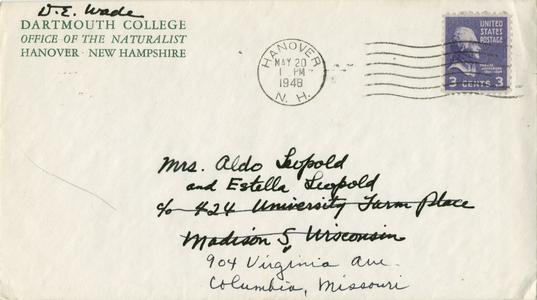 D. E. Wade
DARTMOUTH COLLEGE
OFFICE OF THE NATURALIST
HANOVER · NEW HAMPSHIRE
HANOVER
MAY 20
1 PM
1948
N. H.
UNITED
STATES
POSTAGE
3 CENTS 3
Mrs. Aldo Leopold
and Estella Leopold
c/o 424 University Farm Place
Madison 5, Wisconsin
904 Virginia Ave.
Columbia, Missouri